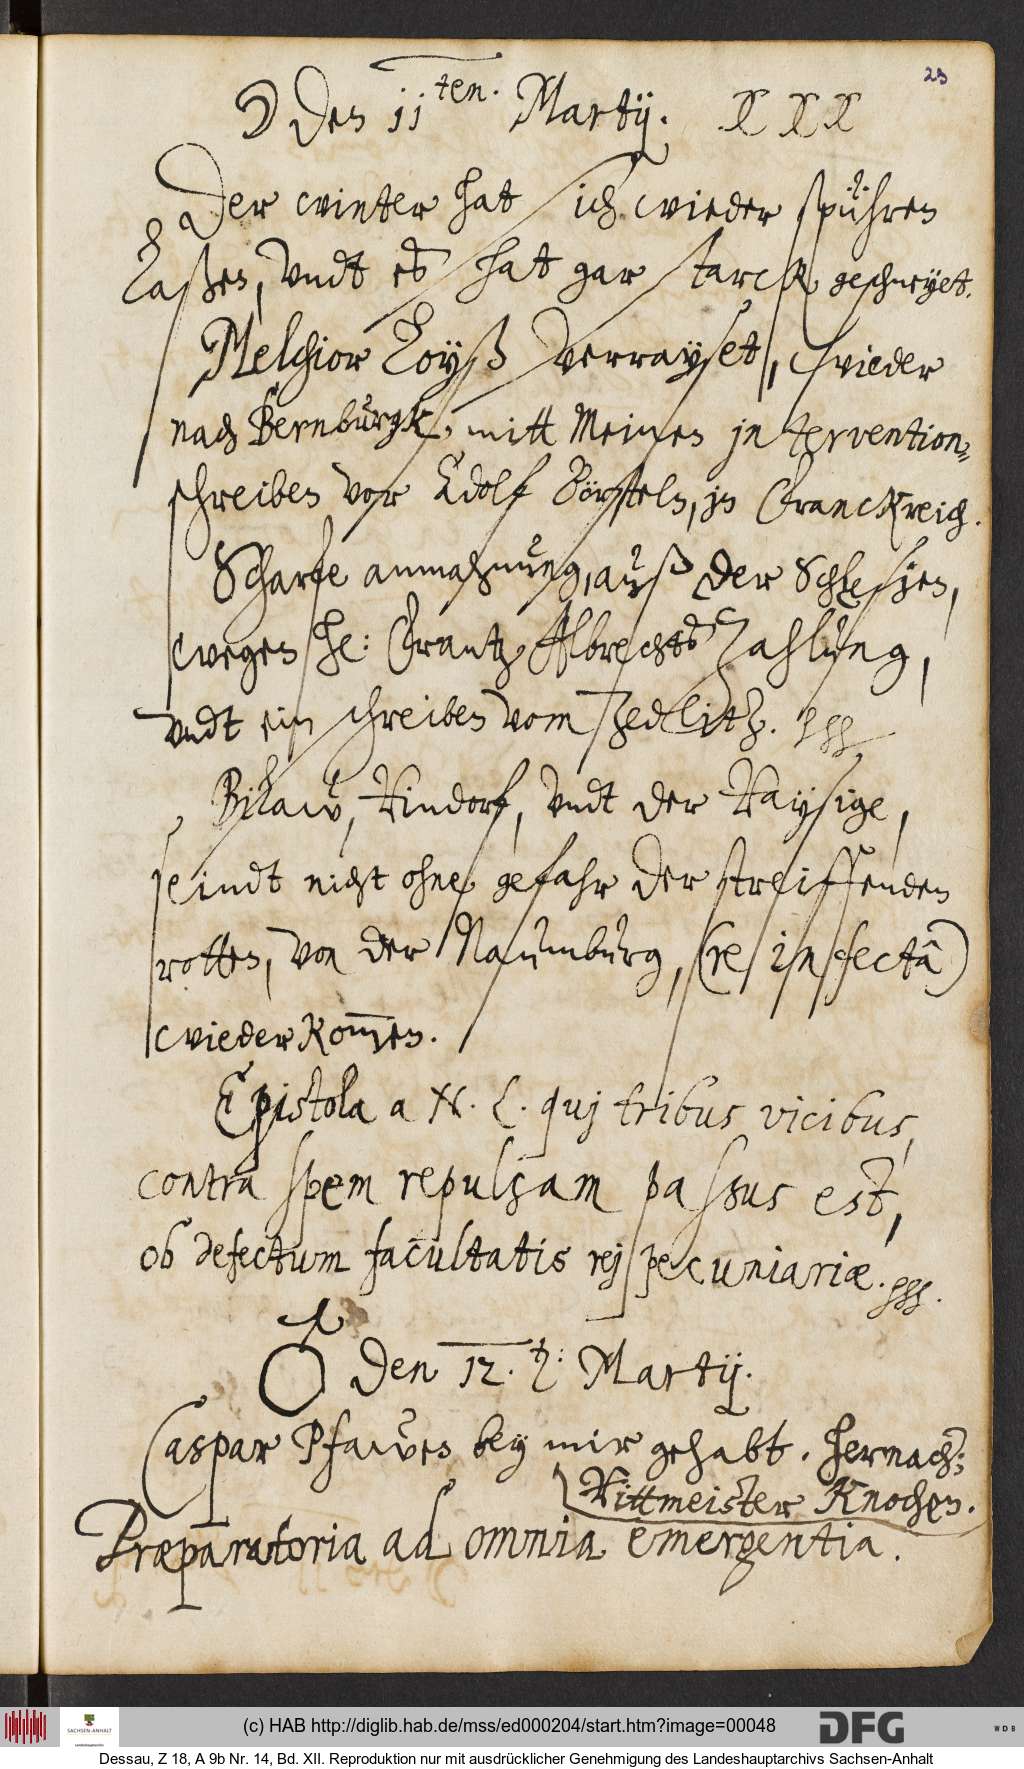 23
☽ den 11ten. Martij. XXX
Der winter hat sich wieder spühren
laßen, vndt es hat gar starck geschneyet.
Melchior Loyß verrayset, wieder
nach Bernburgk, mitt Meinen intervention-
schreiben vor Adolf Börsteln, in Franckreich.
Scharfe anmahnung, auß der Schlesien,
wegen he: Frantz Albrechts zahlung,
vndt ein schreiben vom Zedlitz. ///
Bilaw, Rindorf, vndt der Raysige,
seindt nicht ohne gefahr der streiffenden
rotten, von der Naumburg, (re infectâ)
wieder kom̅en.
Epistola a N. L. quj tribus vicibus,
contra spem repulsam passus est,
ob defectum facultatis rej pecuniariæ. ///.
♂ den 12. t: Martij.
Caspar Pfawen bey mir gehabt. hernach:
Rittmeister Knochen.
Præparatoria ad omnia emergentia.
(c) HAB http://diglib.hab.de/mss/ed000204/start.htm?image=00048
SACHSEN-ANHALT
DFG
WDB
Dessau, Z 18, A 9b Nr. 14, Bd. XII. Reproduktion nur mit ausdrücklicher Genehmigung des Landeshauptarchivs Sachsen-Anhalt